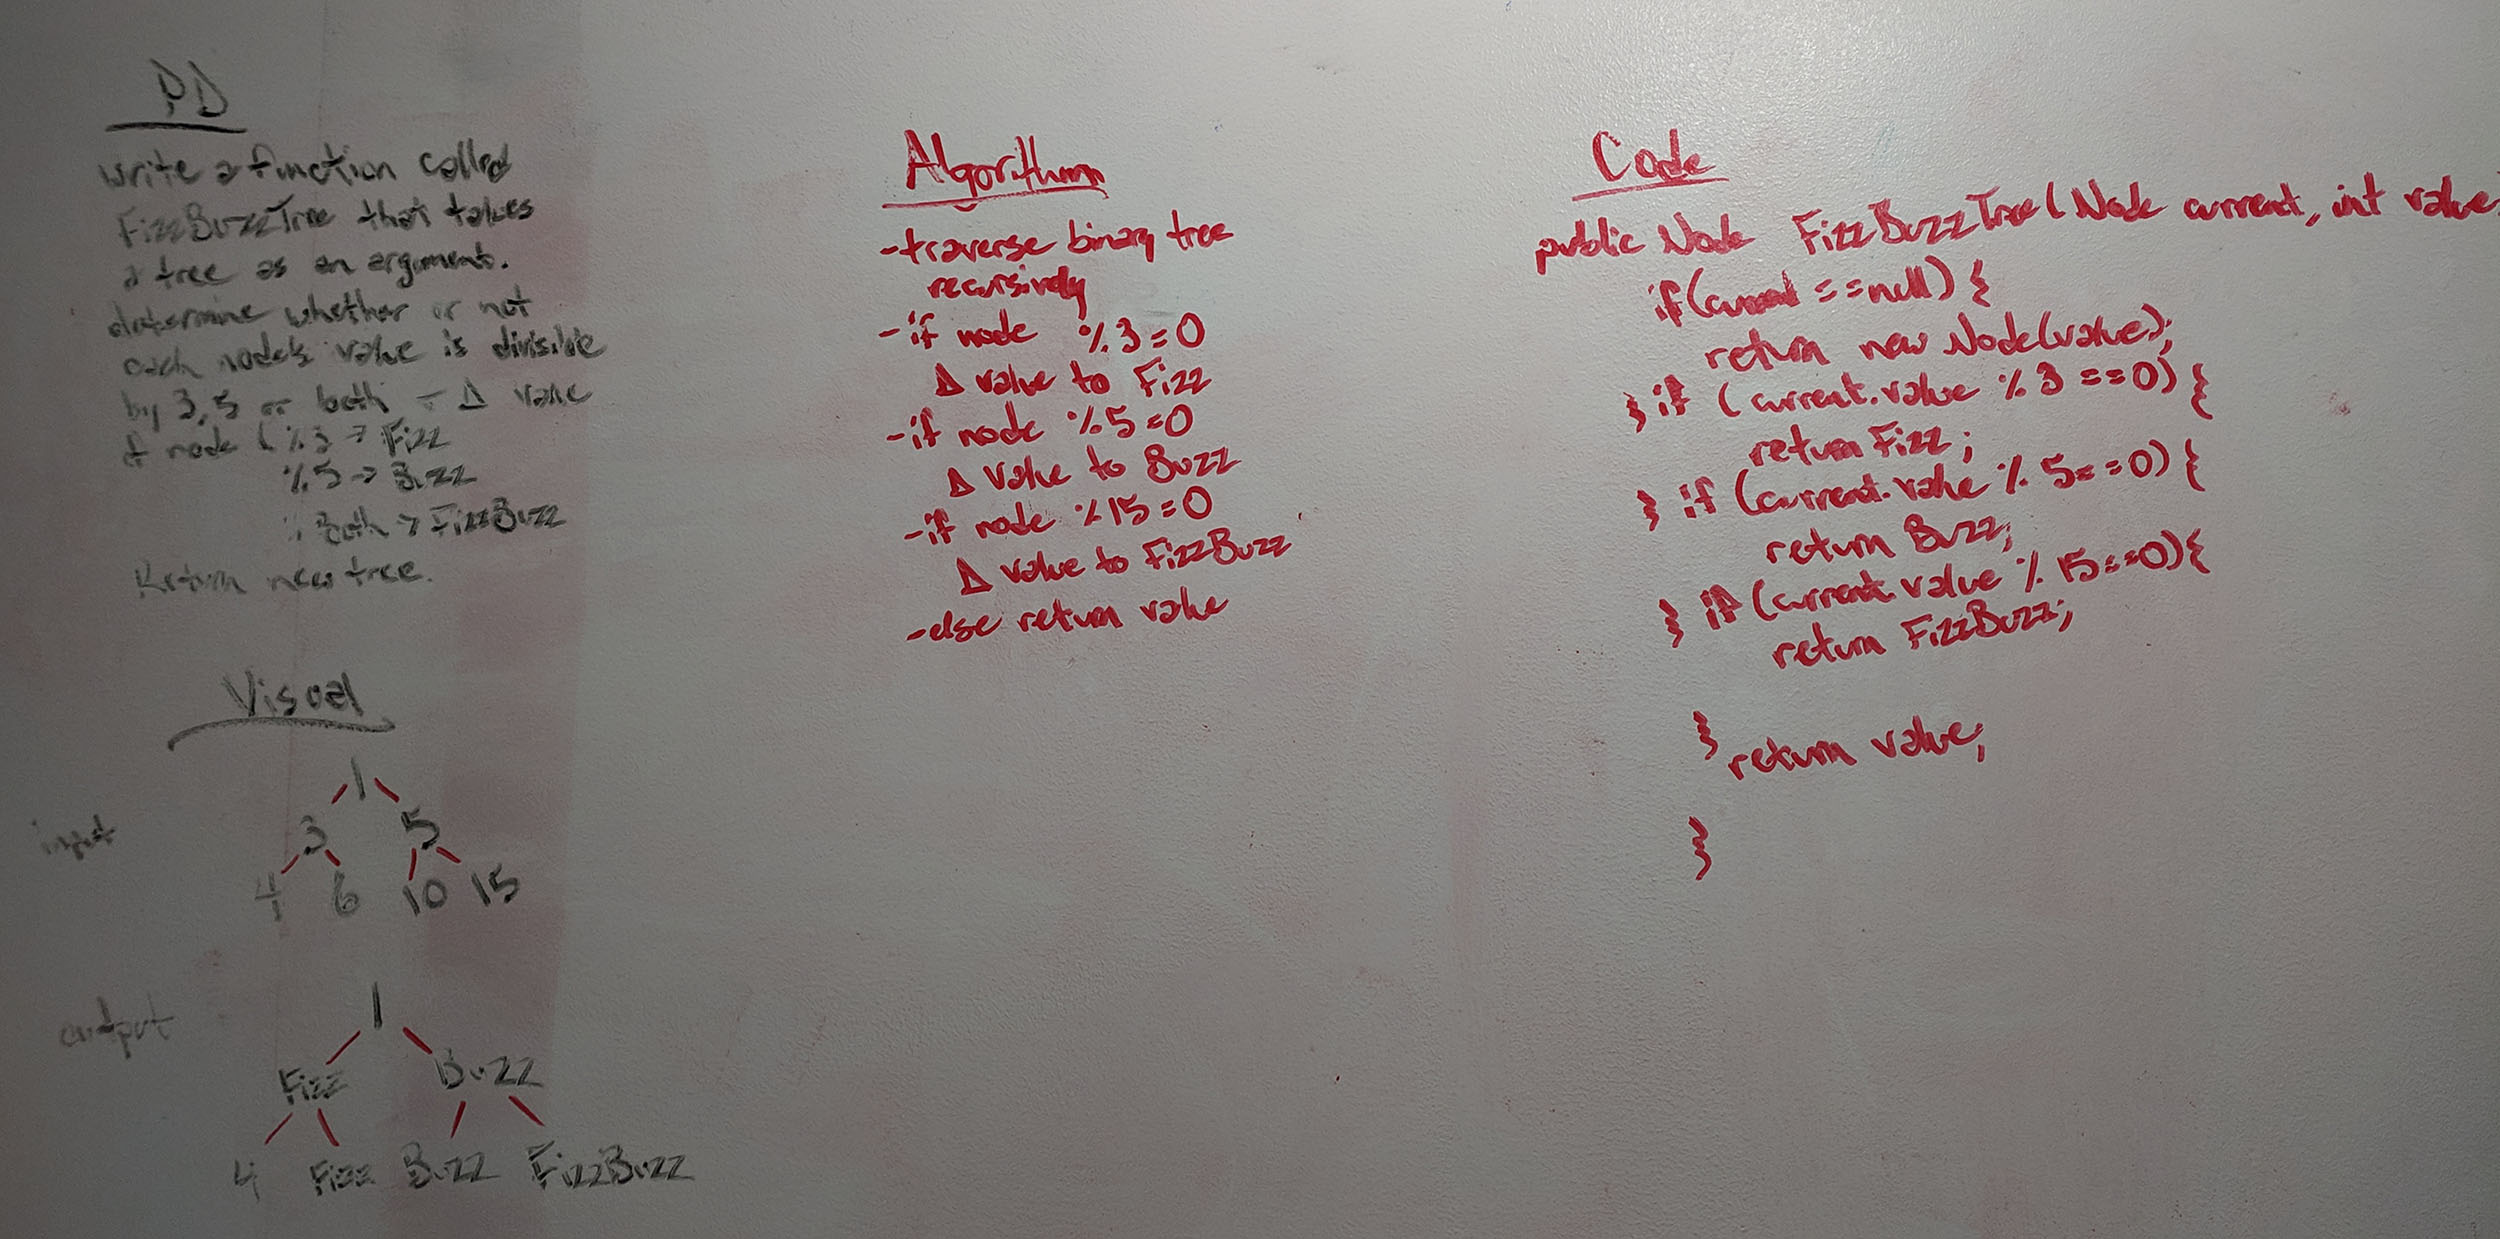 PD
write a function called
FizzBuzzTree that takes
a tree as an argument.
determine whether or not
each node's value is divisible
by 3, 5 or both - Δ value
if node ( % 3 → Fizz
% 5 → Buzz
% Both → FizzBuzz
Return new tree.
Visual
input
1
3 5
4 6 10 15
output
1
Fizz Buzz
4 Fizz Buzz FizzBuzz
Algorithm
- traverse binary tree
recursively
- if node % 3 = 0
Δ value to Fizz
- if node % 5 = 0
Δ value to Buzz
- if node % 15 = 0
Δ value to FizzBuzz
- else return value
Code
public Node FizzBuzzTree(Node current, int value
if(current == null) {
return new Node(value);
} if (current.value % 3 == 0) {
return Fizz;
} if (current.value % 5 == 0) {
return Buzz;
} if (current.value % 15 == 0) {
return FizzBuzz;
}
return value;
}